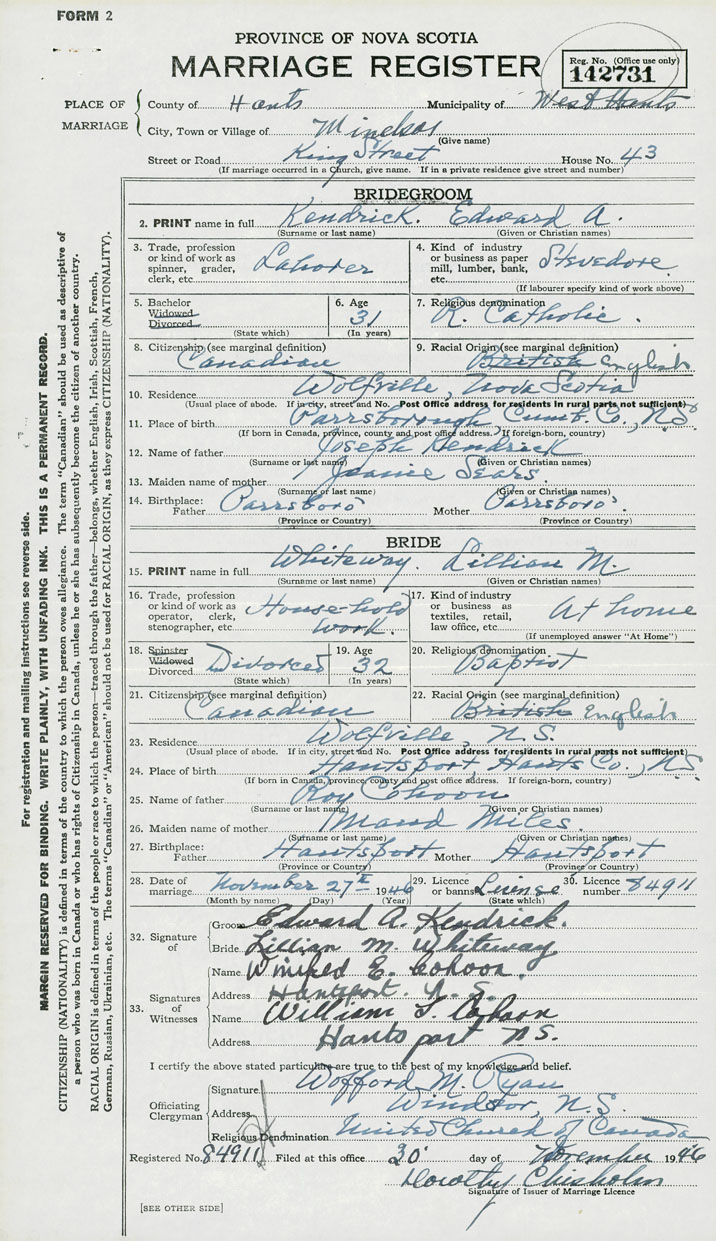 FORM 2
PROVINCE OF NOVA SCOTIA
MARRIAGE REGISTER
Reg. No. (Office use only)
142731
PLACE OF MARRIAGE
County of Hants Municipality of West Hants
City, Town or Village of Windsor
(Give name)
Street or Road King Street House No. 43
(If marriage occurred in a Church, give name. If in a private residence give street and number)
BRIDEGROOM
2. PRINT name in full Kendrick. Edward A.
(Surname or last name) (Given or Christian names)
3. Trade, profession or kind of work as spinner, grader, clerk, etc. Laborer
4. Kind of industry or business as paper mill, lumber, bank, etc. Stevedore
(If labourer specify kind of work above)
5. Bachelor Widowed Divorced
(State which)
6. Age 31
(In years)
7. Religious denomination R. Catholic.
8. Citizenship (see marginal definition) Canadian
9. Racial Origin (see marginal definition) British English
10. Residence Wolfville, Nova Scotia
(Usual place of abode. If in city, street and No. Post Office address for residents in rural parts not sufficient)
11. Place of birth Parrsborough Cumb. Co., N.S.
(If born in Canada, province, county and post office address. If foreign-born, country)
12. Name of father Joseph Kendrick
(Surname or last name) (Given or Christian names)
13. Maiden name of mother Jennie Sears.
(Surname or last name) (Given or Christian names)
14. Birthplace: Father Parrsboro' Mother Parrsboro'
(Province or Country) (Province or Country)
BRIDE
15. PRINT name in full Whiteway. Lillian M.
(Surname or last name) (Given or Christian names)
16. Trade, profession or kind of work as operator, clerk, stenographer, etc. House-hold work.
17. Kind of industry or business as textiles, retail, law office, etc. At home
(If unemployed answer "At Home")
18. Spinster Widowed Divorced Divorced
(State which)
19. Age 32
(In years)
20. Religious denomination Baptist
21. Citizenship (see marginal definition) Canadian
22. Racial Origin (see marginal definition) British English
23. Residence Wolfville, N.S.
(Usual place of abode. If in city, street and No. Post Office address for residents in rural parts not sufficient)
24. Place of birth Hantsport Hants Co., N.S.
(If born in Canada, province, county and post office address. If foreign-born, country)
25. Name of father Roy Cohoon
(Surname or last name) (Given or Christian names)
26. Maiden name of mother Maud Miles.
(Surname or last name) (Given or Christian names)
27. Birthplace: Father Hantsport Mother Hantsport
(Province or Country) (Province or Country)
28. Date of marriage November 27th 1946
(Month by name) (Day) (Year)
29. Licence or banns License
(State which)
30. Licence number 84911
32. Signature of
Groom Edward A. Kendrick.
Bride Lillian M. Whiteway
33. Signatures of Witnesses
Name Winifred E. Cohoon.
Address Hantsport. N.S.
Name William L. Cohoon
Address Hantsport N.S.
I certify the above stated particulars are true to the best of my knowledge and belief.
Officiating Clergyman
Signature Wofford M. Ryan
Address Windsor, N.S.
Religious Denomination United Church of Canada
Registered No. 84911 Filed at this office 30 day of November 1946
Dorothy Chisholm
Signature of Issuer of Marriage Licence
[SEE OTHER SIDE]
For registration and mailing instructions see reverse side.
MARGIN RESERVED FOR BINDING. WRITE PLAINLY, WITH UNFADING INK. THIS IS A PERMANENT RECORD.
CITIZENSHIP (NATIONALITY) is defined in terms of the country to which the person owes allegiance. The term "Canadian" should be used as descriptive of
a person who was born in Canada or who has rights of Citizenship in Canada, unless he or she has subsequently become the citizen of another country.
RACIAL ORIGIN is defined in terms of the people or race to which the person—traced through the father—belongs, whether English, Irish, Scottish, French,
German, Russian, Ukrainian, etc. The terms "Canadian" or "American" should not be used for RACIAL ORIGIN, as they express CITIZENSHIP (NATIONALITY).